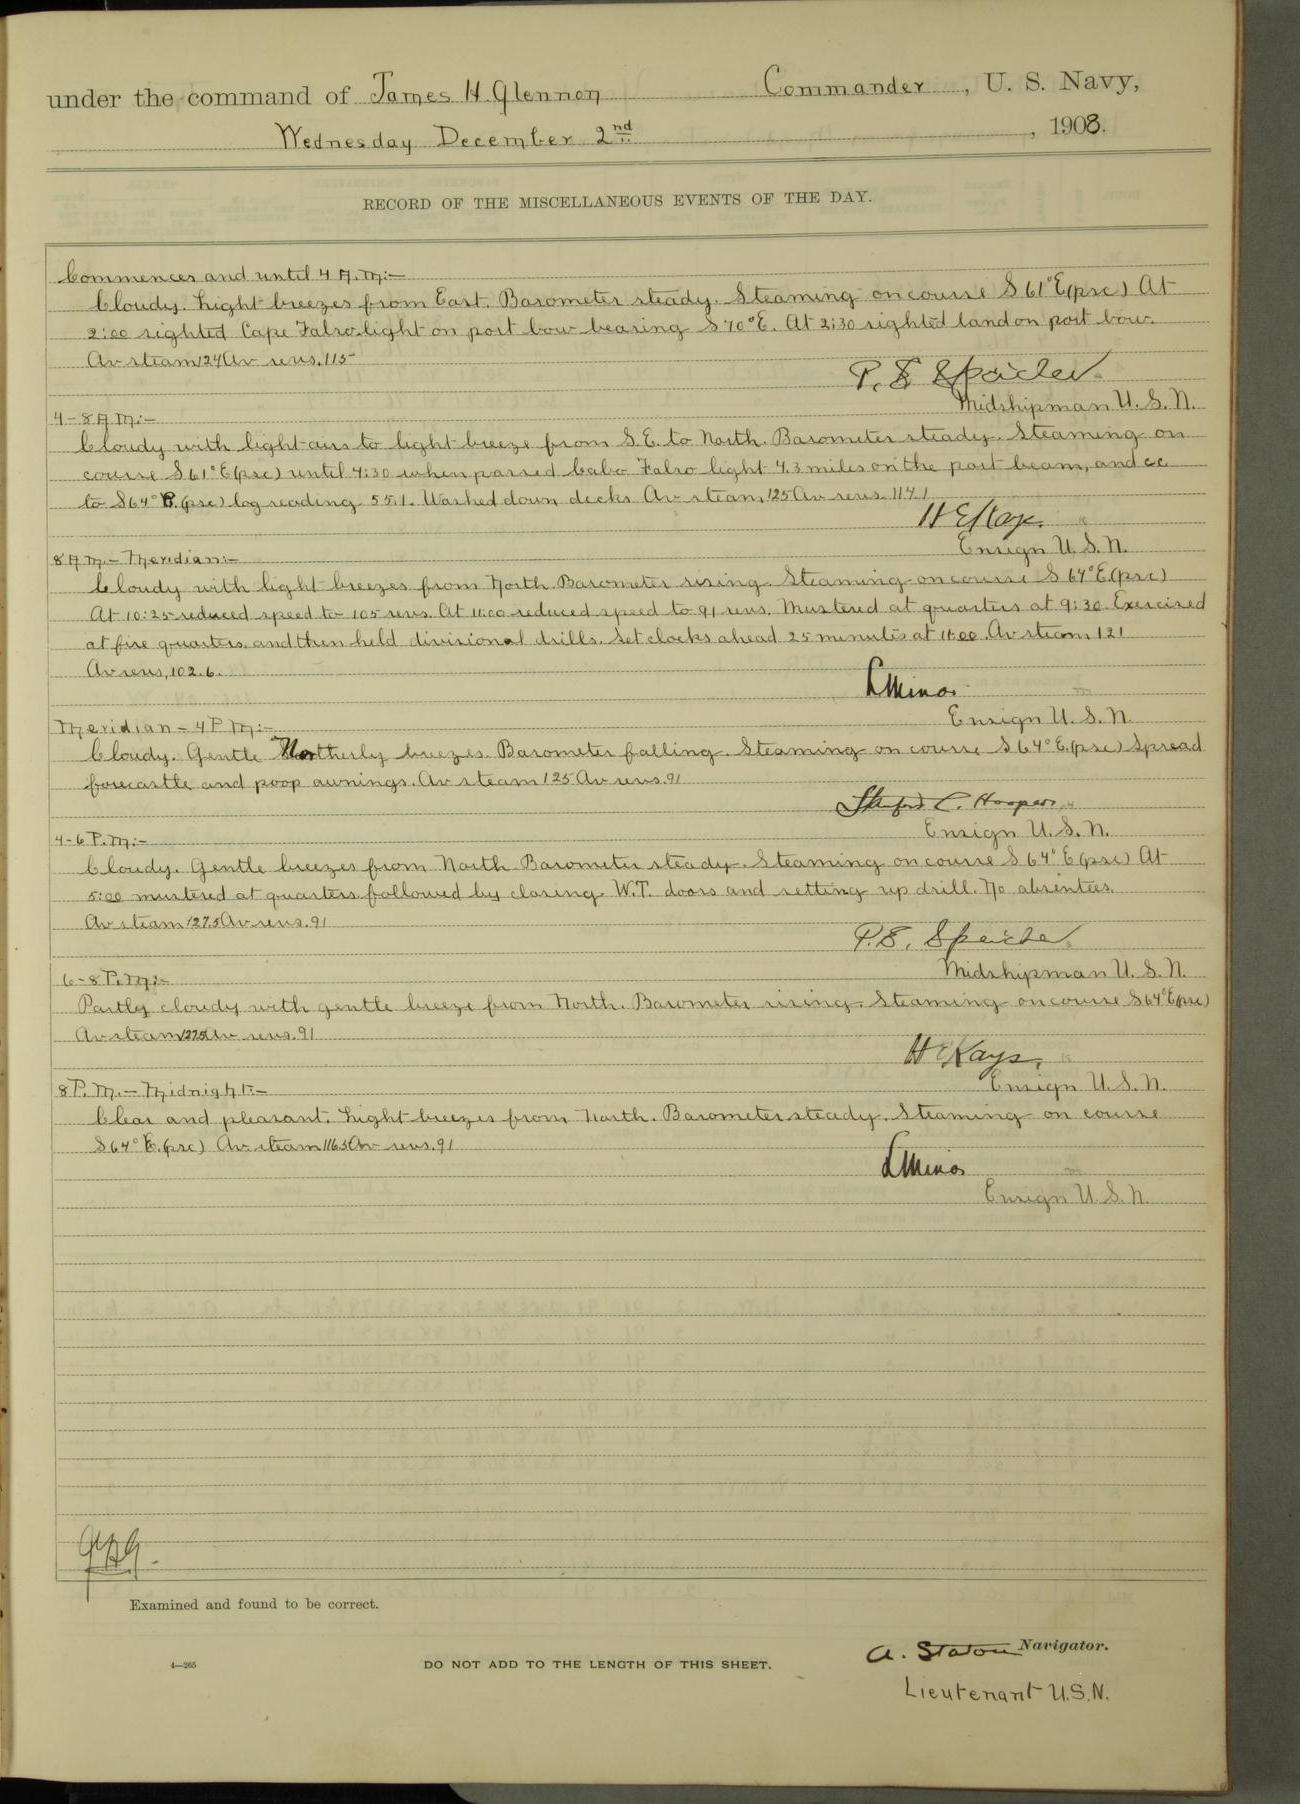 under the command of James H. Glennon Commander, U. S. Navy,
Wednesday December 2nd, 1908.
RECORD OF THE MISCELLANEOUS EVENTS OF THE DAY.
Commences and until 4 A.M:-
Cloudy. Light breezes from East. Barometer steady. Steaming on course S 61° E(psc) At
2:00 sighted Cape Falso light on port bow bearing S 70° E. At 2:30 sighted land on port bow.
Av steam 124 Av revs. 115
P. E. Speicher
Midshipman U. S. N.
4-8 A M:-
Cloudy with light airs to light breeze from S.E. to North. Barometer steady. Steaming on
course S 61° E(psc) until 4:30 when passed Cabo Falso light 4.3 miles on the port beam, and cc
to S 64° E.(psc) log reading 55.1. Washed down decks Av steam 125 Av revs. 114.1
H E Kays.
Ensign U. S. N.
8 A M.- Meridian:-
Cloudy with light breezes from North. Barometer rising. Steaming on course S 64° E.(psc)
At 10:25 reduced speed to 105 revs. At 11:00 reduced speed to 91 revs. Mustered at quarters at 9:30. Exercised
at fire quarters, and then held divisional drills. Set clocks ahead 25 minutes at 11:00. Av steam 121
Av revs, 102.6.
L Minor
Ensign U. S. N.
Meridian - 4 P M:-
Cloudy. Gentle Northerly breezes. Barometer falling. Steaming on course S 64° E.(psc) Spread
forecastle and poop awnings. Av steam 125 Av revs. 91
Stanford C. Hooper
Ensign U. S. N.
4-6 P.M:-
Cloudy. Gentle breezes from North Barometer steady. Steaming on course S 64° E (psc) At
5:00 mustered at quarters followed by closing W.T. doors and setting up drill. No absentees.
Av steam 127.5 Av revs. 91
P. E. Speicher
Midshipman U. S. N.
6-8 P.M:-
Partly cloudy with gentle breeze from North. Barometer rising. Steaming on course S 64° E(psc)
Av steam 127.5 Av revs. 91
H E Kays.
Ensign U. S. N.
8 P. M.- Midnight:-
Clear and pleasant. Light breezes from North. Barometer steady. Steaming on course
S 64° E.(psc) Av. steam 116.5 Av revs. 91
L Minor
Ensign U. S. N.
Examined and found to be correct.
A. Staton Navigator.
4—265
DO NOT ADD TO THE LENGTH OF THIS SHEET.
Lieutenant U.S.N.